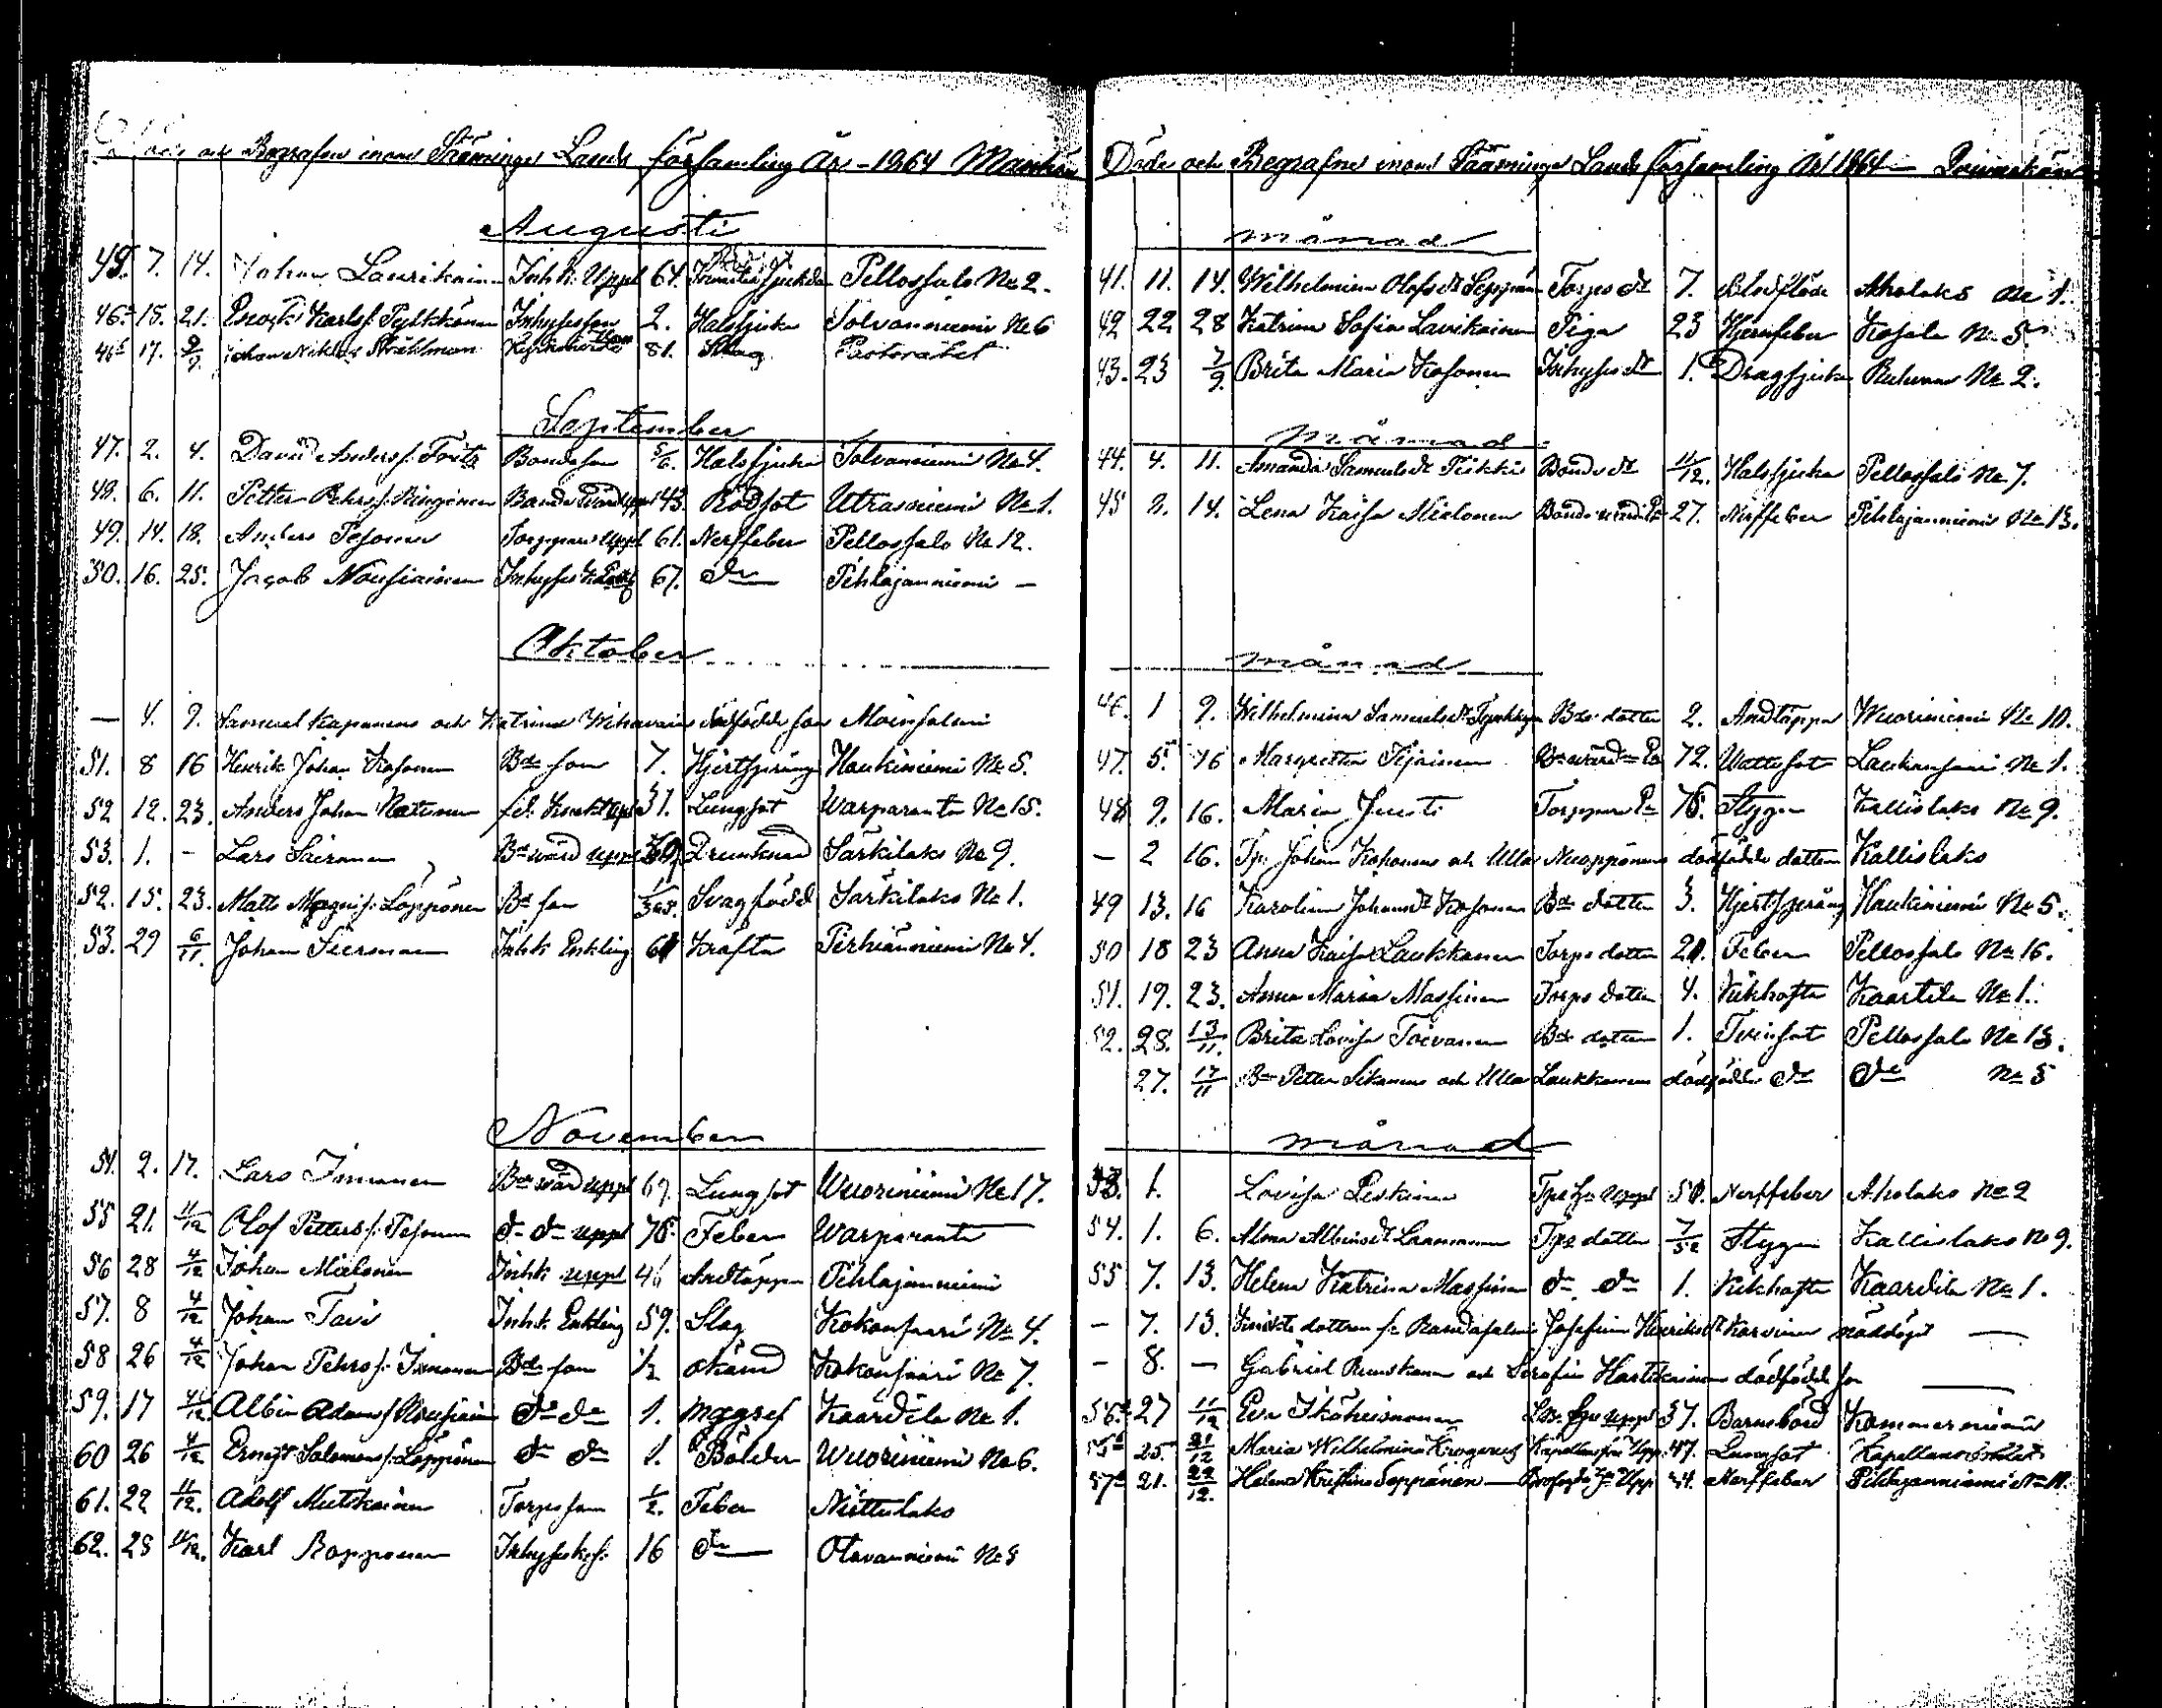 Döde och Begrafne inom Sääminge Lands församling År 1864 Mankön
Augusti
45. 7. 14. Johan Laurikain Inhk. Uppl 64. Pellossalo No 2.
46a 15. 21. Enok Karlsf. Pylkkönen Inhysesson 2. Halssjuka Tolvanniemi No 6
46b 17. 9/9 Johan Niklas Stråhlman Kyrkoherde 81. Slag Pastoratet
September
47. 2. 4. David Andersf. Tuits Bondeson 5/6. Halssjuka Tolvanniemi No 4.
48. 6. 11. Petter Pehrsf. Ringinen Bonde Värd uppl 43 Rödsot Utrasniemi No 1.
49. 14. 18. Anders Pesonen Torppare uppl 61. Nerffeber Pellossalo No 12.
50. 16. 25. Jacob Nousiainen Inhyses 67. do Pihlajanniemi —
Oktober
— 4. 9. Samuel Kaponens och Katrina Wihavainens dödfödde son Moinsalmi
51. 8 16 Henrik Johan Kosonen Bde son 7. Hjertsprång Haukiniemi No 5.
52 12. 23. Anders Johan Natunen fd. Knekt uppl 31. Lungsot Warparanta No 15.
53. 1. - Lars Sairanen Bde värd uppl Drunknad Särkilaks No 9.
52. 15. 23. Matts Magnif. Löppönen Bd son 1/365. Svagfödd Särkilaks No 1.
53. 29 6/11. Johan Tiermanen Inhk Enkling 61 Kräfta Pirhiänniemi No 4.
November
54. 2. 17. Lars Immonen Bde värd uppl 69. Lungsot Wuoriniemi No 17.
55 21. 11/12 Olof Pettersf. Pesonen do do uppl 78. Feber Warparanta
56 28 4/12 Johan Mielonen Inhk uppl 46 Andtäppa Pihlajanniemi
57. 8 4/12 Johan Tavi Inhk Enkling 59. Slag Kokonsaari No 4.
58 26 4/12 Johan Pehrsf. Immonen Bde son 1/2 okänd Kokonsaari No 7.
59. 17 4/12 Albin Adamsf Nousiain do do 1. Magref Kaardila No 1.
60 26 4/12 Ernest Salomonsf. Löppönen do do 1. Bölder Wuoriniemi No 6.
61. 22 11/12. Adolf Mutikainen Torpeson 1/2. Feber Niittulaks
62. 28 11/12. Karl Ropponen Inhyseskf. 16 do Otavanniemi No 8
Döde och Begrafne inom Sääminge Lands församling År 1864 — Qvinnokön
månad
41. 11. 14. Wilhelmina Olofsdr Seppän Torpedr 7. Blodflöde Aholaks No 1.
42 22 28 Katrina Sofia Lavikainen Piga 23 Hjernfeber Kosola No 5
43. 23 7/9. Brita Maria Kosonen Inhysesdr 1. Dragsjuka Ruhuna No 2.
månad
44. 4. 11. Amanda Samuelsdr Tiikki Bondedr 11/12. Halssjuka Pellossalo No 7.
45 8. 14. Lena Kaisa Mielonen Bonde värd 27. Nerffeber Pihlajanniemi No 13.
månad
46. 1 9. Wilhelmina Samuelsdr Bde dotter 2. Andtäppa Wuoriniemi No 10.
47. 5. 16 Margretha Tijainen Bde värd Ea 72. Wattusot Laukansaari No 1.
48 9. 16. Maria Juuti Torppare Ea 78. Stygn Kallislaks No 9.
— 2 16. Tp. Johan Kohonens och Ulla Nuopponens dödfödde dotter Kallislaks
49 13. 16 Karolina Johansdr Kosonen Bde dotter 3. Hjertsprång Haukiniemi No 5.
50 18 23 Anna Kaisa Laukkanen Torpe dotter 20. Feber Pellossalo No 16.
51. 19. 23. Anna Maria Massinen Torpe dotter 4. Kikhosta Kaartila No 1.
52. 28. 13/11. Brita Lovisa Toivanen Bde dotter 1. Tvinsot Pellossalo No 13.
27. 17/11 Bn Petter Sikanens och Ulla Laukkanens dödfödde do do No 5
månad
53. 1. Lovisa Leskinen Tpe hu uppl 50. Nerffeber Aholaks No 2
54. 1. 6. Alma Albinsdr Laamanen Tpe dotter 7/52 Stygn Kallislaks No 9.
55 7. 13. Helena Katrina Massinen do do 1. Kikhosta Kaardila No 1.
- 7. 13. Knekte dottren fr. Randasalmi Josefina Henriksdr Karvinen nöddöpt —
- 8. — Gabriel Ruuskanen och Serafia Hartikainens dödfödde son —
56a 27 11/12 Eva Ikäheimonen hu uppl 37. Barnsbörd Kommerniemi
55b 25. 21/12 Maria Wilhelmina Krogerus Kapellansfru Upp. 47. Lungsot Kapellansbolet
57a 21. 22/12. Helena Kristina Seppänen — Upp. 44. Nerffeber Pihlajanniemi No 11.